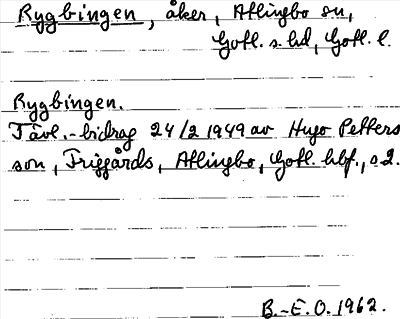 Rygbingen, åker, Atlingbo sn,
Gotl. s. hd, Gotl. l.
Rygbingen.
Tävl.-bidrag 24/2 1949 av Hugo Petters
son, Friggårds, Atlingbo, Gotl. hbf., s 2.
B.-E.O. 1962.